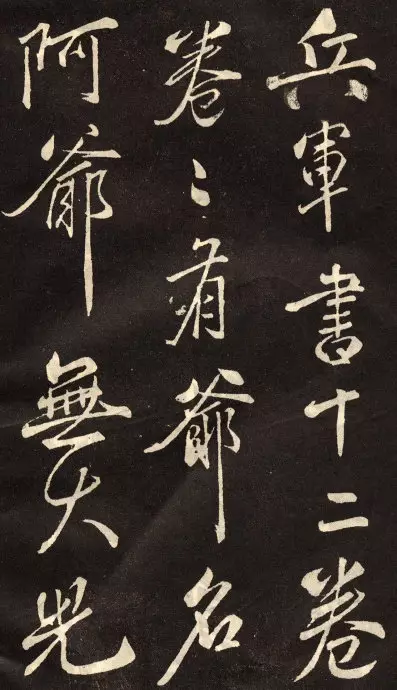 兵軍書十二卷
卷〻有爺名
阿爺無大兒